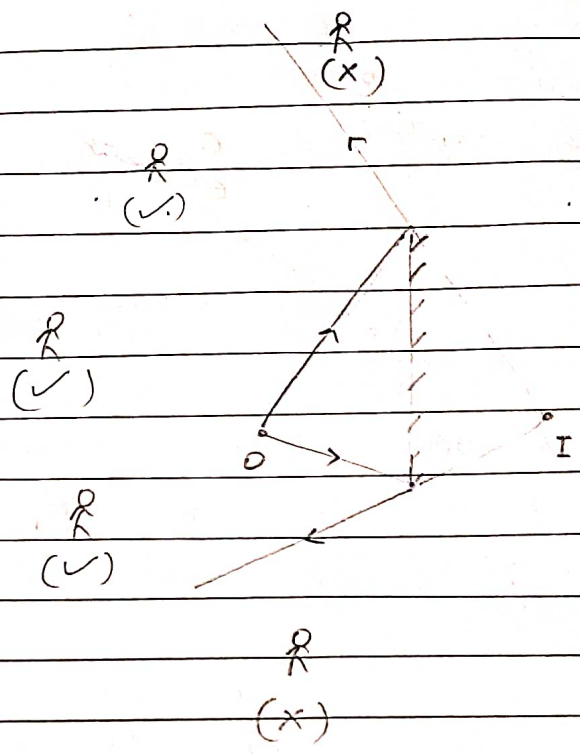 (×)
(✓)
(✓)
O
I
(✓)
(×)